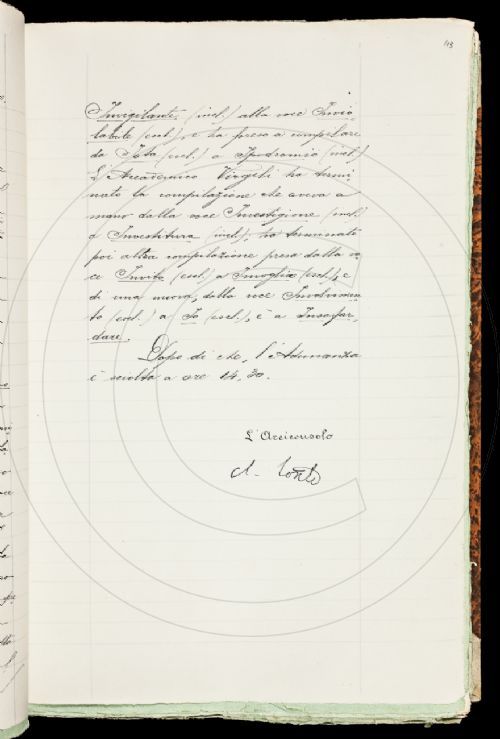 113
Invigilante (incl.) alla voce Invio-
labile (escl.), e ha preso a compilare
da Iota (incl.) a Ipodromio (incl.)
L'Accademico Virgili ha termi
nato la compilazione che aveva a
mano dalla voce Investigione (incl.)
a Investitura (incl.), ha terminato
poi altra compilazione presa dalla vo
ce Invito (escl.) a Invoglia (escl.), e
di una nuova, dalla voce Involumen
to (escl.) a Io (escl.), è a Insafar-
dare.
Dopo di che, l'Adunanza
è sciolta a ore 14,30.
L'Arciconsolo